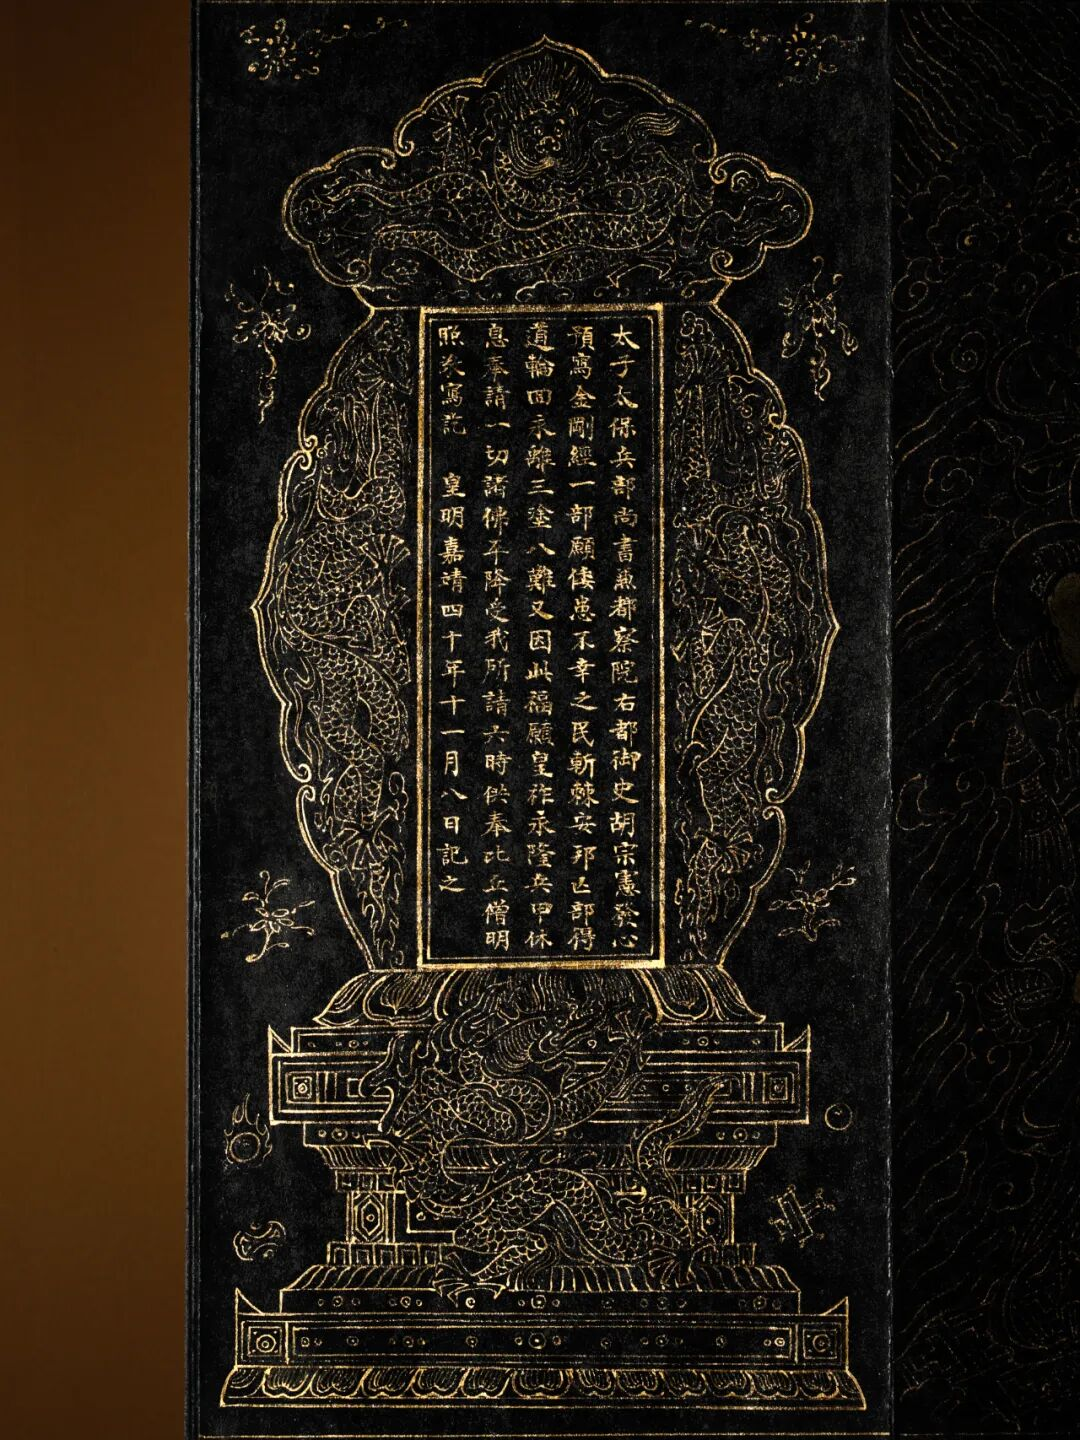 太子太保兵部尚書兼都察院右都御史胡宗憲發心
預寫金剛經一部願倭患不幸之民斬棘安邦部得
道輪回永離三塗八難又因此福願皇祚永隆兵甲休
息奉請一切諸佛降受我所請六時供奉比丘僧明
照寫訖 皇明嘉靖四十年十一月八日記之